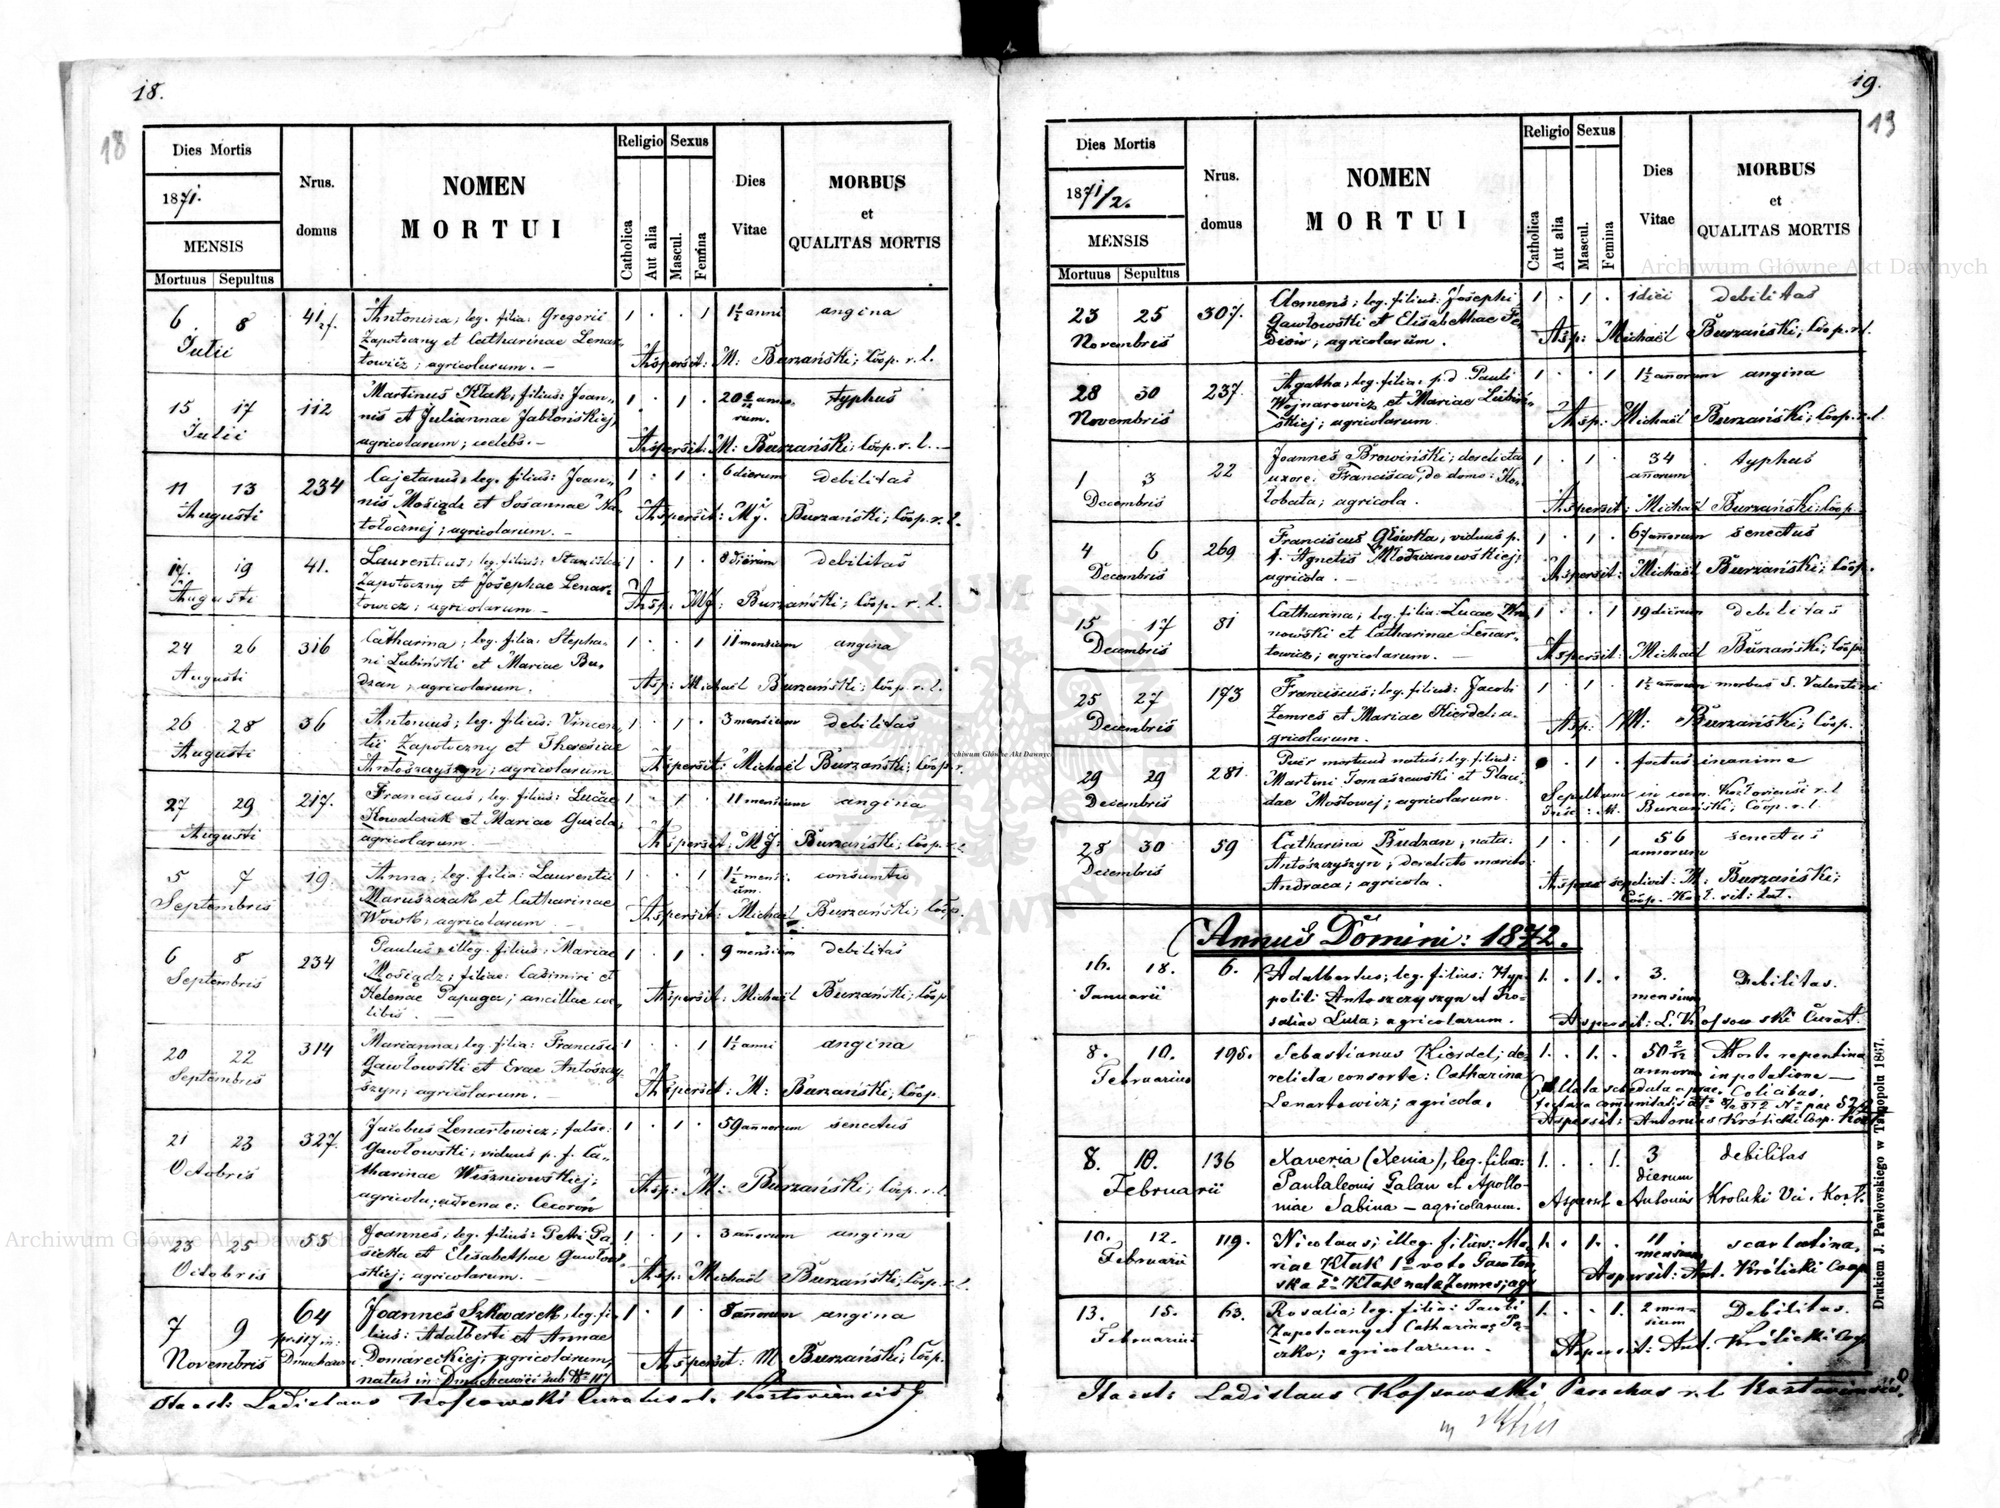 18.
18
Dies Mortis
1871.
MENSIS
Mortuus Sepultus
Nrus.
domus
NOMEN
MORTUI
Religio
Catholica
Aut alia
Sexus
Mascul.
Femina
Dies
Vitae
MORBUS
et
QUALITAS MORTIS
6 8 Antonina; leg. filia: Gregorii 1 . . 1 1½ anni angina
Julii Zapotoczny et Catharinae Lenar
towicz; agricolarum. Aspersit: M: Burzański; Coop. r. l.
15 17 112 Martinus Kłak, filius: Joan-
Julii nis et Juliannae Jabłońskiej, 1 . 1 . typhus
agricolarum; celebs. Aspersit: M: Burzański; Coop. r. l.
11 13 234 Cajetanus, leg. filius: Joan- 1 . 1 . 6 dierum debilitas
Augusti nis Mosiądz et Sosannae
agricolarum. Aspersit: MJ. Burzański; Coop. r. l.
19 41. Laurentius, leg. filius: Stanislai 1 . 1 . 8 dierum debilitas
Augusti Zapotoczny et Josephae Lenar-
towicz; agricolarum Asp: MJ: Burzański; Coop. r. l.
24 26 316 Catharina; leg. filia: Stepha- 1 . . 1 11 mensium angina
Augusti ni Lubiński et Mariae Bu-
dzan; agricolarum. Asp: Michaël Burzański; Coop. r. l.
26 28 36 Antonius; leg. filius: Vincen- 1 . 1 . 3 mensium debilitas
Augusti tii Zapotoczny et Theresiae
Antoszczyszyn; agricolarum Aspersit: Michaël Burzański; Coop. r.
27 29 217. Franciscus, leg. filius: Lucae 1 . 1 . 11 mensium angina
Augusti Kowalczuk et Mariae
agricolarum. Aspersit: MJ: Burzański; Coop. r. l.
5 7 19. Anna; leg. filia: Laurentii 1 . . 1 1½ mensi-
Septembris Maruszczak et Catharinae um.
Wowk, agricolarum Aspersit: Michael Burzański; Coop.
6 8 234 Paulus, illeg. filius: Mariae 1 . 1 . 9 mensium debilitas
Septembris Mosiądz; filiae: Casimiri et
Helenae Papuga; ancillae ce- Aspersit: Michaël Burzański; Coop
libis.
20 22 314 Marianna, leg. filia: Francisci 1 . . 1 1½ anni angina
Septembris Gawłowski et Evae Antoszczy-
szyn; agricolarum. Aspersit: M: Burzański, Coop.
21 23 327. Jacobus Lenartowicz; false: 1 . 1 . 59 annorum senectus
Octobris Gawłowski; viduus p. f. Ca-
tharinae Wiszniowskiej; Asp: M: Burzański; Coop. r. l.
agricola;
23 25 55 Joannes, leg. filius: Petri Pa- 1 . 1 . 3 annorum angina
Octobris sieka et Elisabethae Gawłow-
skiej; agricolarum. Asp: Michaël Burzański, Coop. r. l.
7 9 64 Joannes Szkwarek, leg. fi- 1 . 1 . 8 annorum angina
Novembris lius: Adalberti et Annae
Domareckiej; agricolarum, Aspersit: M Burzański; Coop.
natus in: Dmuchawici sub No 117
Ladislaus Kossowski Curatus
19.
19
Dies Mortis
1871/2.
MENSIS
Mortuus Sepultus
Nrus.
domus
NOMEN
MORTUI
Religio
Catholica
Aut alia
Sexus
Mascul.
Femina
Dies
Vitae
MORBUS
et
QUALITAS MORTIS
23 25 307. Clemens; leg. filius: Josephi 1 . 1 . 1 diei debilitas
Novembris Gawłowski et Elisabethae Fe-
diow; agricolarum. Asp: Michaël Burzański; Coop. r. l.
28 30 237. Agatha; leg. filia: p. d. Pauli 1 . . 1 1½ annorum angina
Novembris Wojnarowicz et Mariae Lubiń-
skiej; agricolarum Asp: Michaël Burzański, Coop. r. l.
1 3 22 Joannes Browiński; derelicta 1 . 1 . 34 typhus
Decembris uxore: Francisca, de domo: annorum
agricola. Aspersit: Michaël Burzański; Coop.
4 6 269 Franciscus Główka, viduus p. 1 . 1 . 67 annorum senectus
Decembris f. Agnetis Młodzianowskiej;
agricola. Aspersit: Michaël Burzański; Coop.
15 17 81 Catharina; leg. filia: Lucae 1 . . 1 19 dierum debilitas
Decembris nowski et Catharinae Lenar-
towicz; agricolarum. Aspersit: Michaël Burzański; Coop.
25 27 173 Franciscus; leg. filius: Jacobi 1 . 1 . 1½ annorum morbus S. Valentini
Decembris Zemres et Mariae Kierdel; a-
gricolarum. Asp: M: Burzański; Coop.
29 29 281. Puer mortuus natus; leg. filius: . 1 . foetus inanime
Decembris Martini Tomaszewski et Placi-
dae Mostowej; agricolarum. Sepultum in coem. r. l.
M. Burzański; Coop. r. l.
28 30 59 Catharina Budzan, nata: 1 . . 1 56 senectus
Decembris Antoszczyszyn; derelicto marito: annorum
Andraea; agricola. sepelivit: M: Burzański;
Annus Domini: 1872.
16. 18. 6. Adalbertus; leg. filius: Hyp- 1. . 1. . 3. Debilitas.
Januarii politi Antoszczyszyn et Ro- mensium
saliae Lula; agricolarum. Aspersit: L. Kossowski Curat.
8. 10. 195. Sebastianus Kierdel; de- 1. . 1. . 50 2/12 Morte repentina
Februarius relicta consorte: Catharina annorum in potatione
Lenartowicz; agricola.
Aspersit: Antonius Królicki Coop.
8. 10. 136 Xaveria (Xenia), leg. filia: 1. . . 1. 3 debilitas
Februarii Pantaleonis Galan et Apollo- dierum
niae Sabina — agricolarum. Aspersit Antonius Krolicki
10. 12. 119. Nicolaus; illeg. filius: Ma- 1. . 1. . 11 scarlatina.
Februarii riae Kłak 1o voto Gawłow- mensium
ska 2o Kłak nata Zemres; agr Aspersit: Ant. Królicki Coop
13. 15. 63. Rosalia; leg. filia: Jacobi 1. . . 1. 2 men- Debilitas.
Februarius Zapotoczny et Catharinae Pa- sium
czko; agricolarum. Aspersit: Ant. Królicki Coop
Ladislaus Kossowski Parochus r. l.
Drukiem J. Pawłowskiego w Tarnopolu 1867.
Archiwum Główne Akt Dawnych
Archiwum Główne Akt Dawnych
Archiwum Główne Akt Dawnych